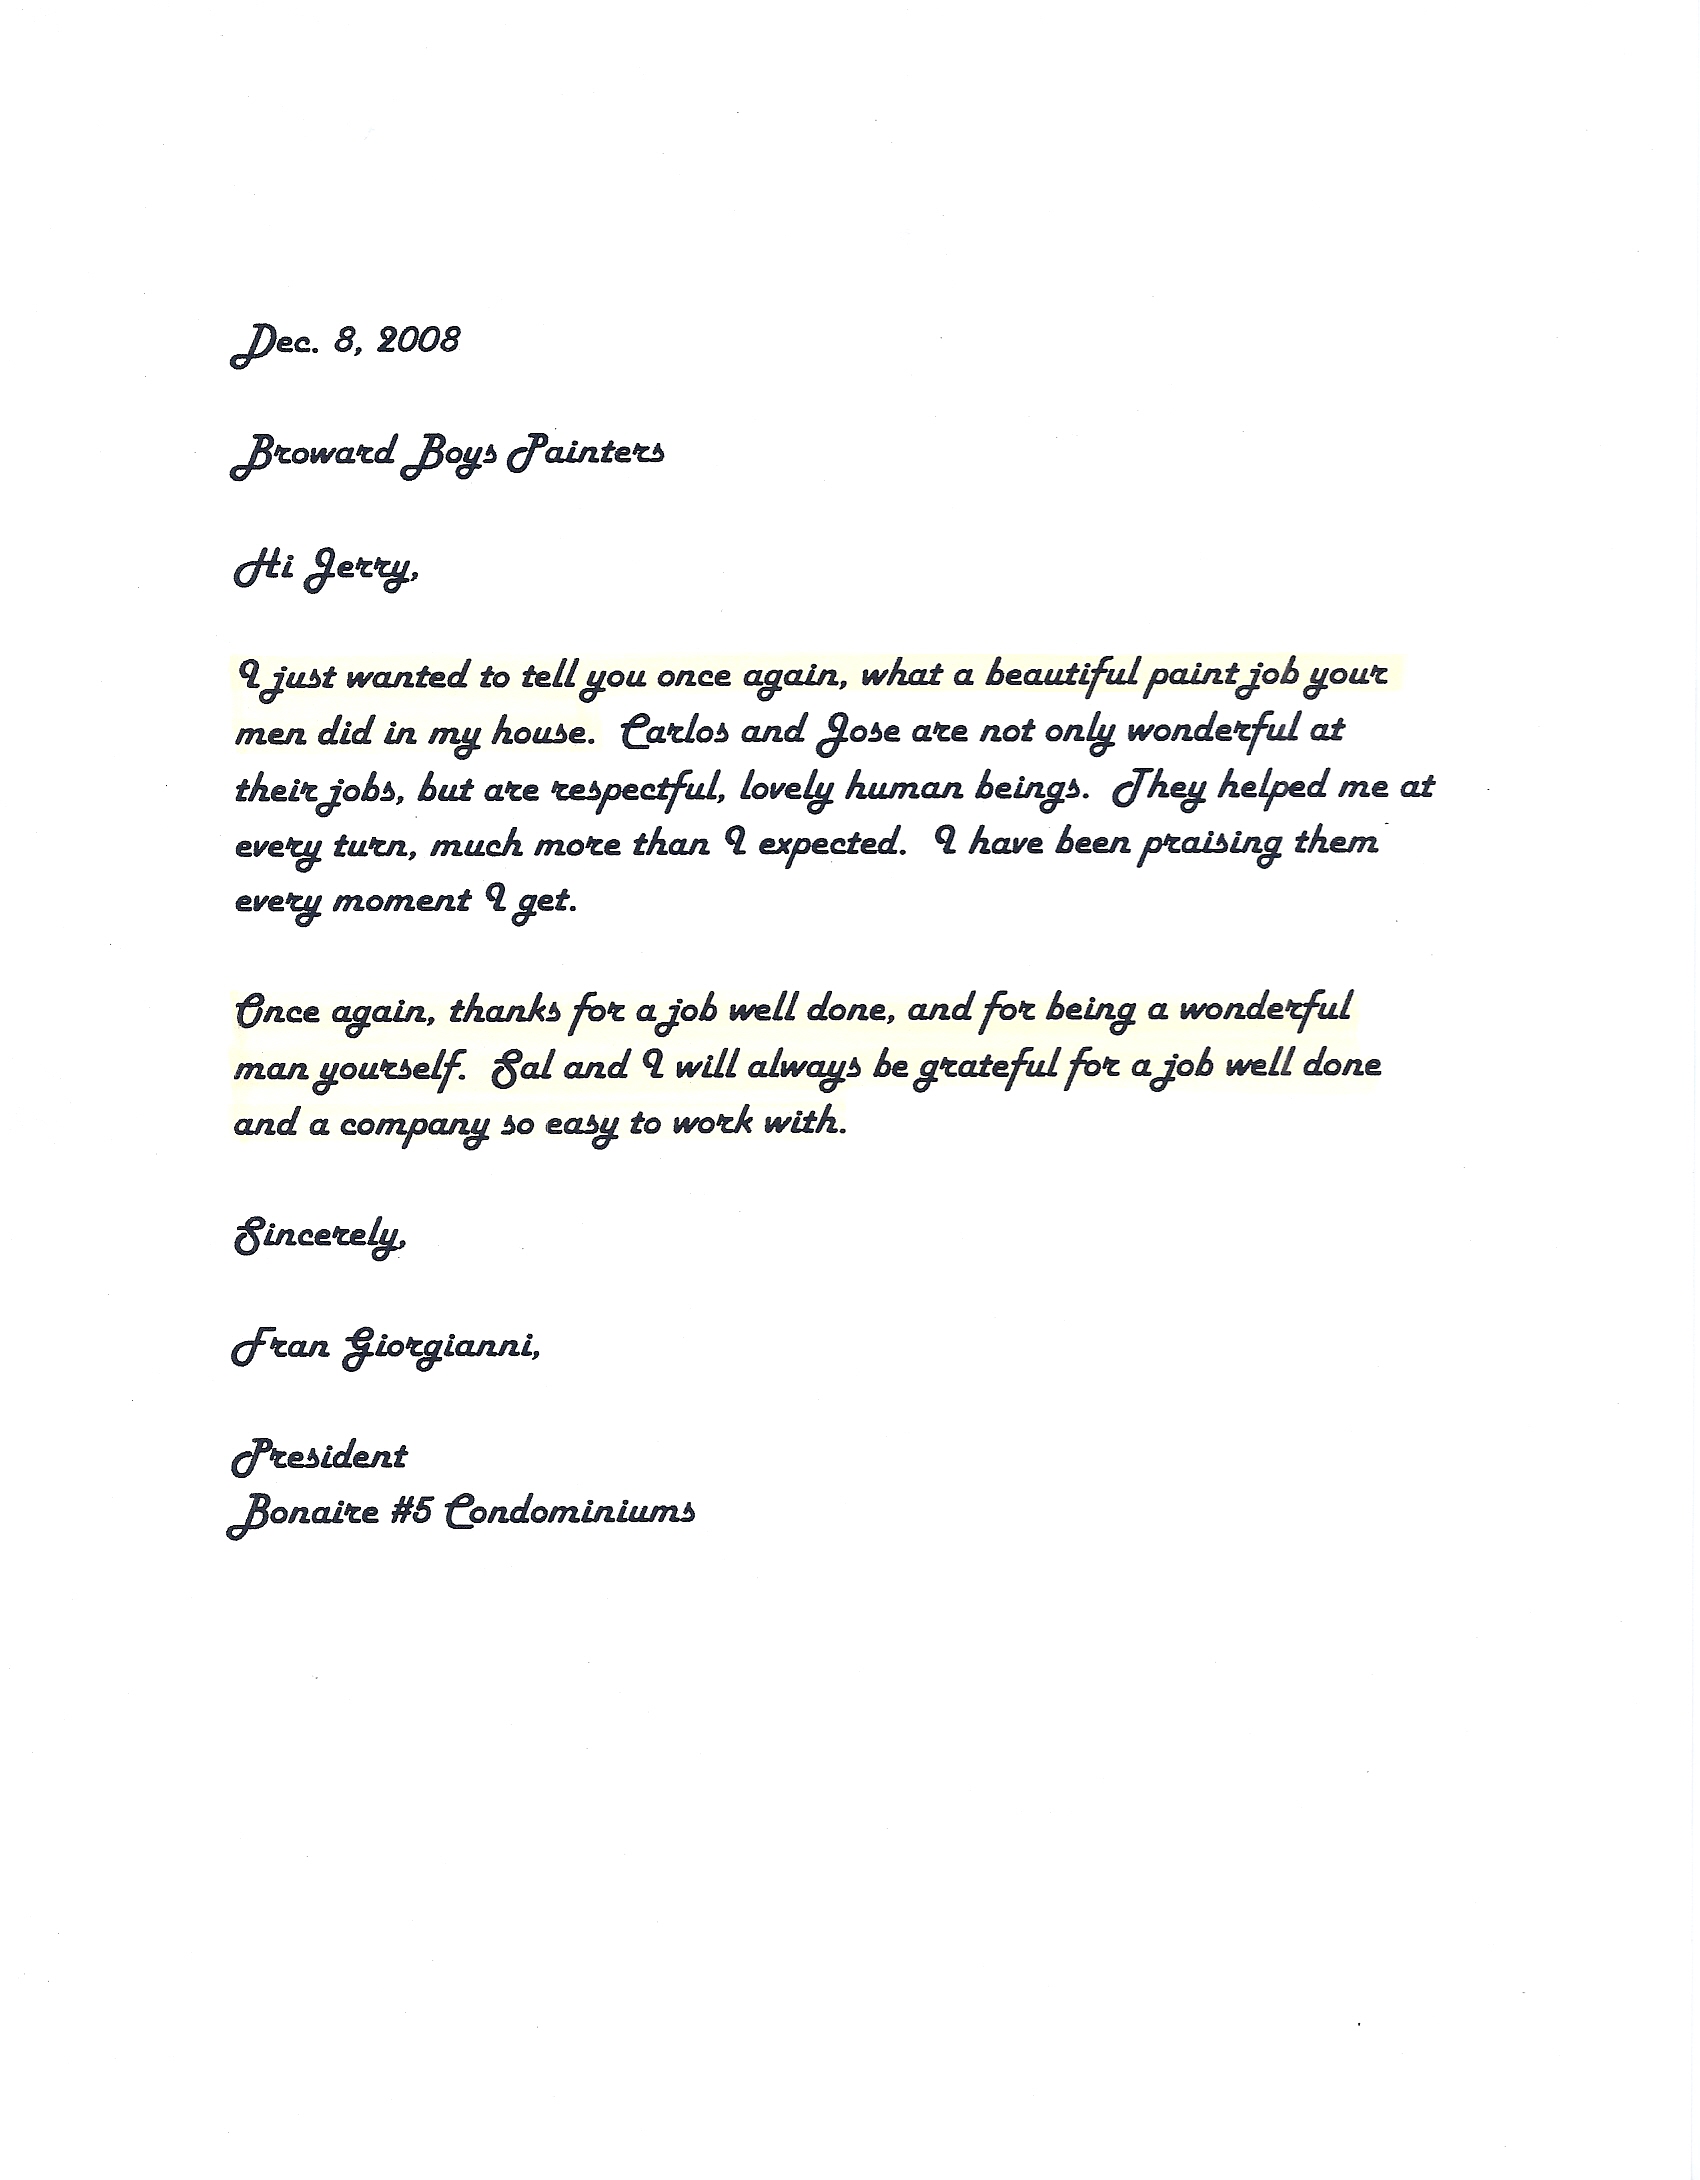 Dec. 8, 2008
Broward Boys Painters
Hi Jerry,
I just wanted to tell you once again, what a beautiful paint job your
men did in my house. Carlos and Jose are not only wonderful at
their jobs, but are respectful, lovely human beings. They helped me at
every turn, much more than I expected. I have been praising them
every moment I get.
Once again, thanks for a job well done, and for being a wonderful
man yourself. Sal and I will always be grateful for a job well done
and a company so easy to work with.
Sincerely,
Fran Giorgianni,
President
Bonaire #5 Condominiums